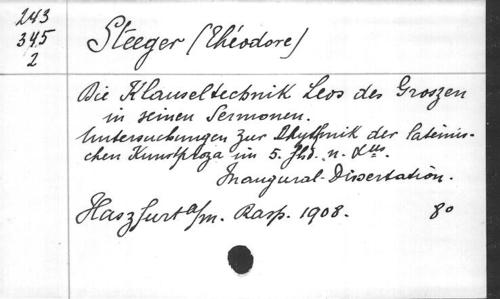 243
345
2
Steeger (Théodore)
Die Klauseltechnik Leos des Groszen
in seinen Sermonen.
Untersuchungen zur Rhythmik der lateinis-
chen Kunstproza im 5. Jhd. n. Xus.
Inaugural-Dissertation.
Haszfurt a/m. Rasp. 1908. 8o